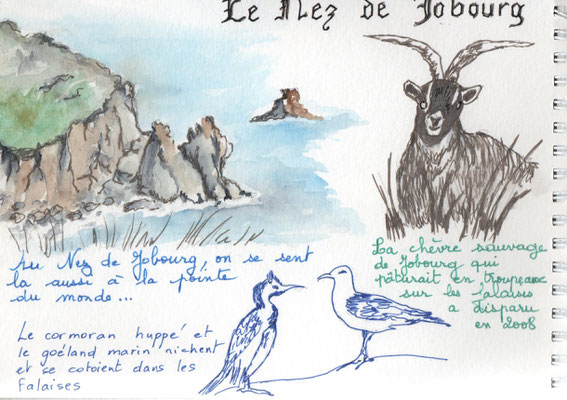 Le Nez de Jobourg
Au Nez de Jobourg, on se sent
la aussi à la pointe
du monde...
La chèvre sauvage
de Jobourg qui
pâturait en troupeaux
sur les falaises
a disparu
en 2008
Le cormoran huppé et
le goéland marin nichent
et se cotoient dans les
Falaises